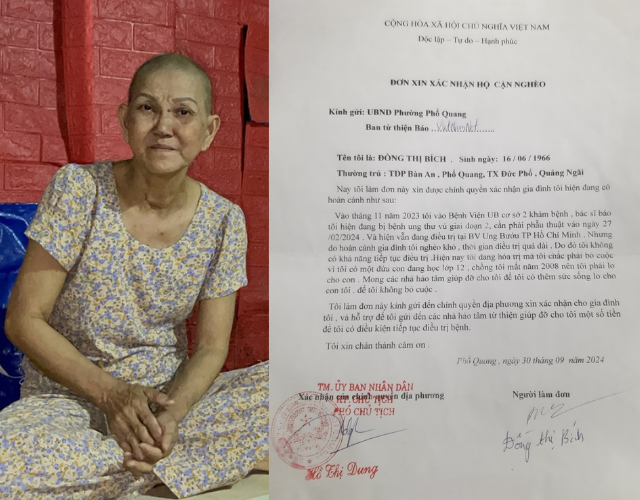 CỘNG HÒA XÃ HỘI CHỦ NGHĨA VIỆT NAM
Độc lập – Tự do – Hạnh phúc
ĐƠN XIN XÁC NHẬN HỘ CẬN NGHÈO
Kính gửi: UBND Phường Phổ Quang
Ban từ thiện Báo ..VietNamNet.......
Tên tôi là: ĐỒNG THỊ BÍCH . Sinh ngày: 16 / 06 / 1966
Thường trú : TDP Bàn An , Phổ Quang, TX Đức Phổ , Quảng Ngãi
Nay tôi làm đơn này xin được chính quyền xác nhận gia đình tôi hiện đang có
hoàn cảnh như sau:
Vào tháng 11 năm 2023 tôi vào Bệnh Viện UB cơ sở 2 khám bệnh , bác sĩ báo
tôi hiện đang bị bệnh ung thư vú giai đoạn 2, cần phải phẫu thuật vào ngày 27
/02/2024 . Và hiện vẫn đang điều trị tại BV Ung Bướu TP Hồ Chí Minh . Nhưng
do hoàn cảnh gia đình tôi nghèo khó , thời gian điều trị quá dài . Do đó tôi không
có khả năng tiếp tục điều trị .Hiện nay tôi đang hóa trị mà tôi chắc phải bỏ cuộc
vì tôi có một đứa con đang học lớp 12 , chồng tôi mất năm 2008 nên tôi phải lo
cho con . Mong các nhà hảo tâm giúp đỡ cho tôi để tôi có thêm sức sống lo cho
con tôi . để tôi không bỏ cuộc .
Tôi làm đơn này kính gửi đến chính quyền địa phương xin xác nhận cho gia đình
tôi , và hỗ trợ để tôi gửi đến các nhà hảo tâm từ thiện giúp đỡ cho tôi một số tiền
để tôi có điều kiện tiếp tục điều trị bệnh.
Tôi xin chân thành cảm ơn .
Phổ Quang , ngày 30 tháng 09 năm 2024
TM. ỦY BAN NHÂN DÂN
Xác nhận của chính quyền địa phương
Người làm đơn
KT. CHỦ TỊCH
PHÓ CHỦ TỊCH
Đồng thị Bích
Hồ Thị Dung